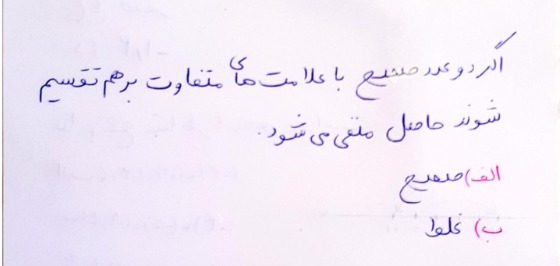 اگر دو عدد صحیح با علامت های متفاوت بر هم تقسیم
شوند حاصل منفی می شود.
الف) صحیح
ب) غلط